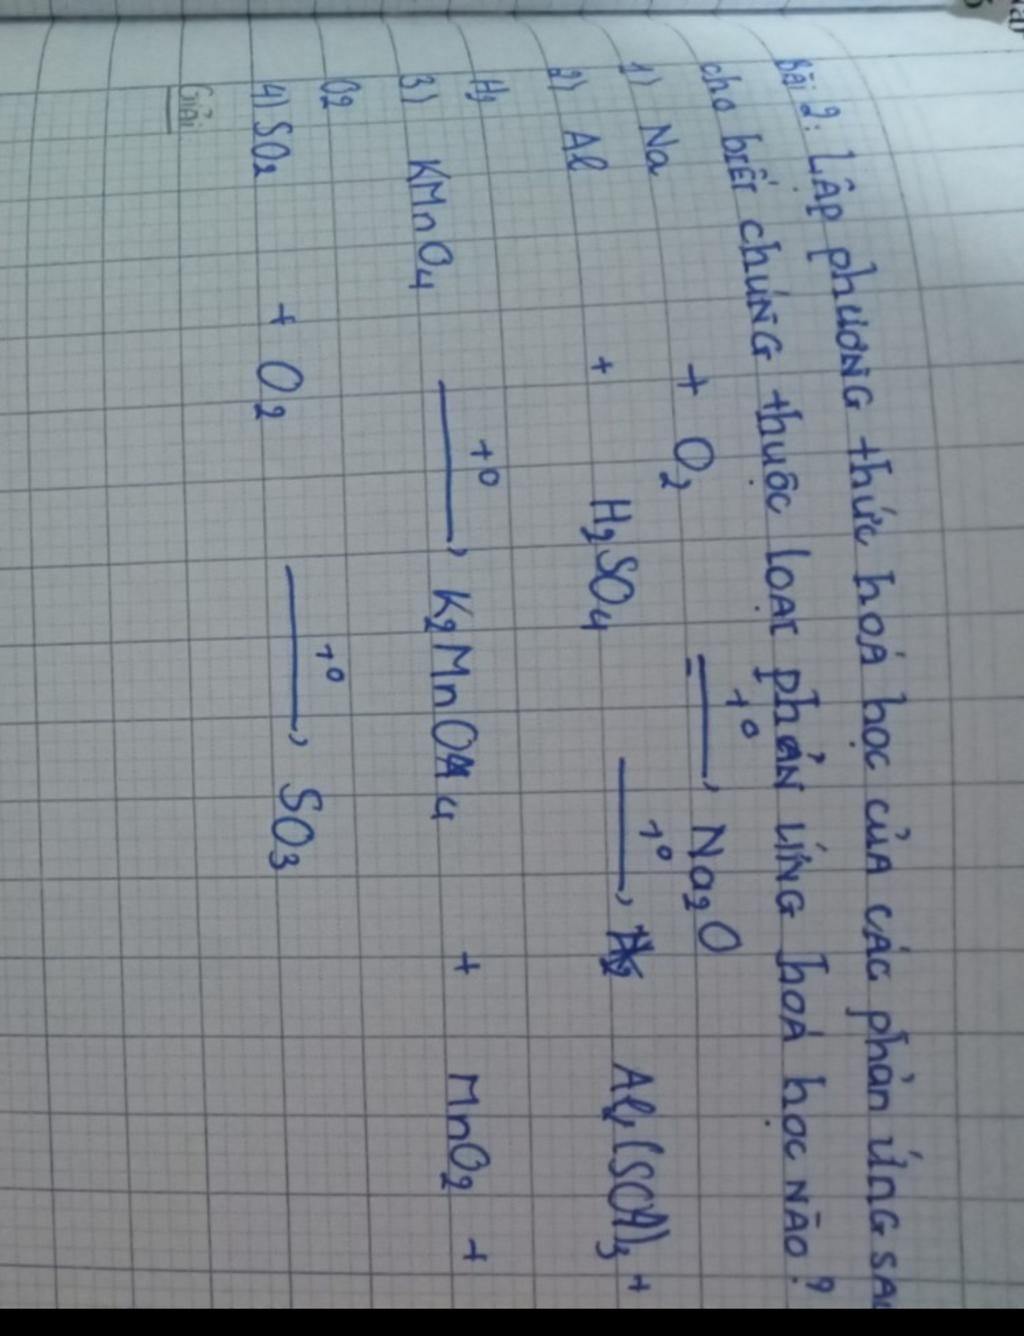 Bài 2: Lập phương thức hoá học của các phản ứng sau
cho biết chúng thuộc loại phản ứng hoá học nào?
1) Na + O2 —t°→ Na2O
2) Al + H2SO4 —t°→ Al2(SO4)3 +
H2
3) KMnO4 —t°→ K2MnO4 + MnO2 +
O2
4) SO2 + O2 —t°→ SO3
Giải